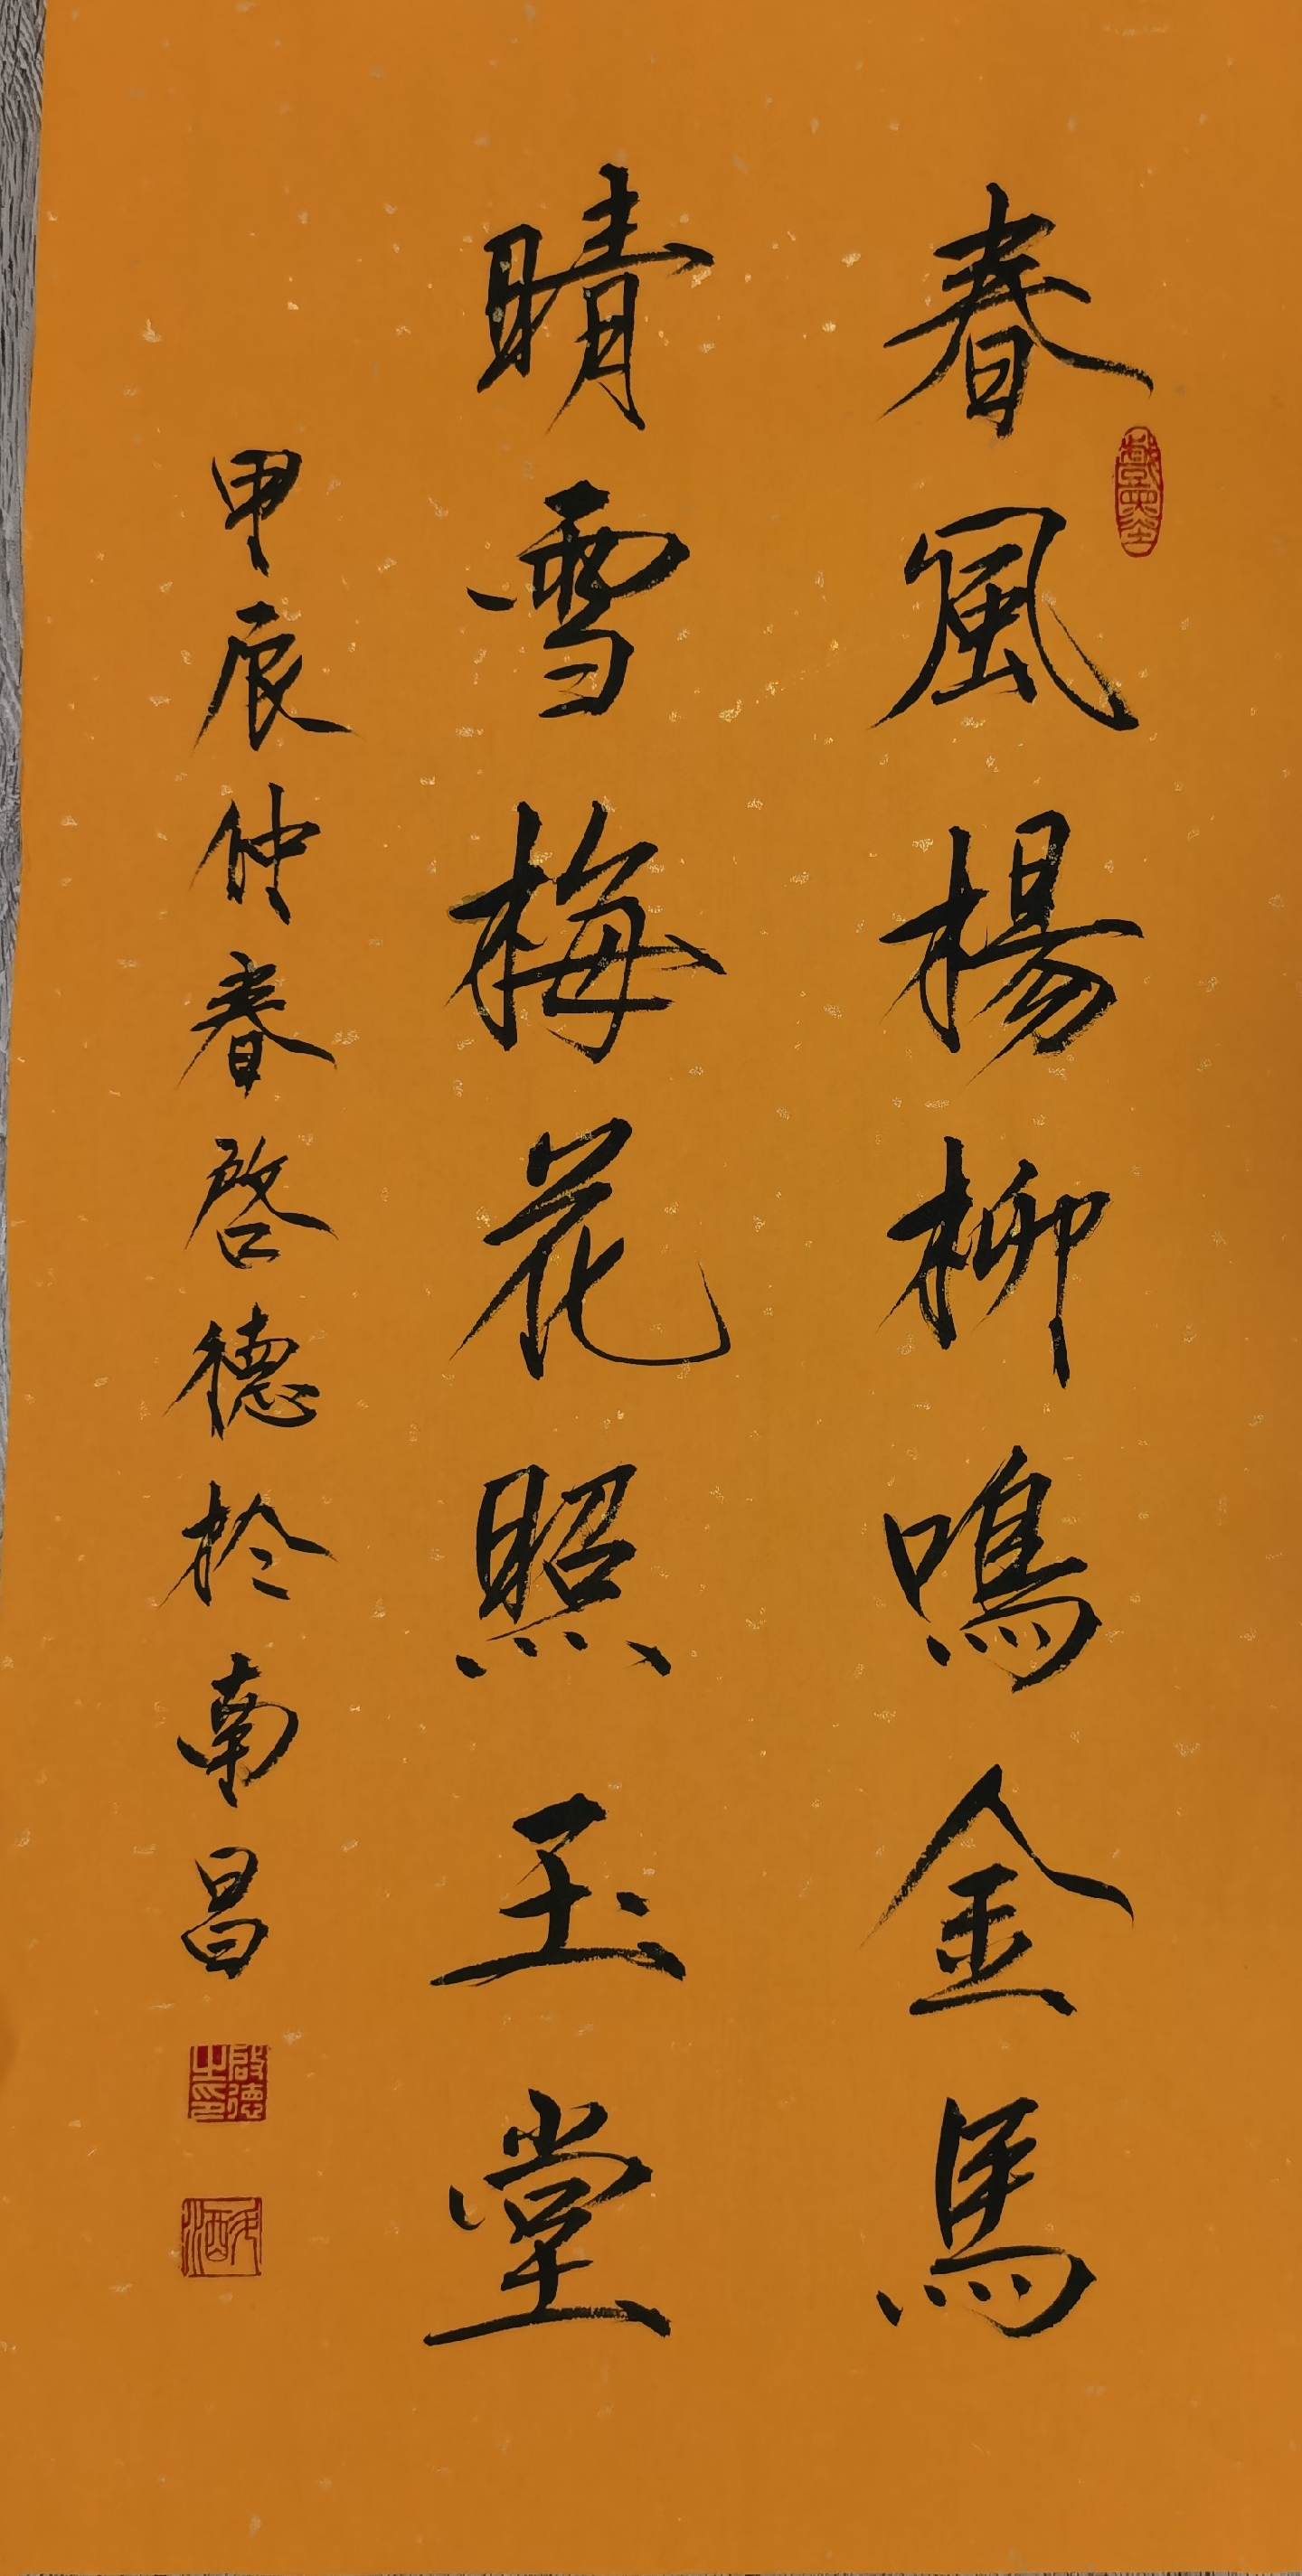 春風楊柳鳴金馬
晴雪梅花照玉堂
甲辰仲春啓德於南昌
啟德之印